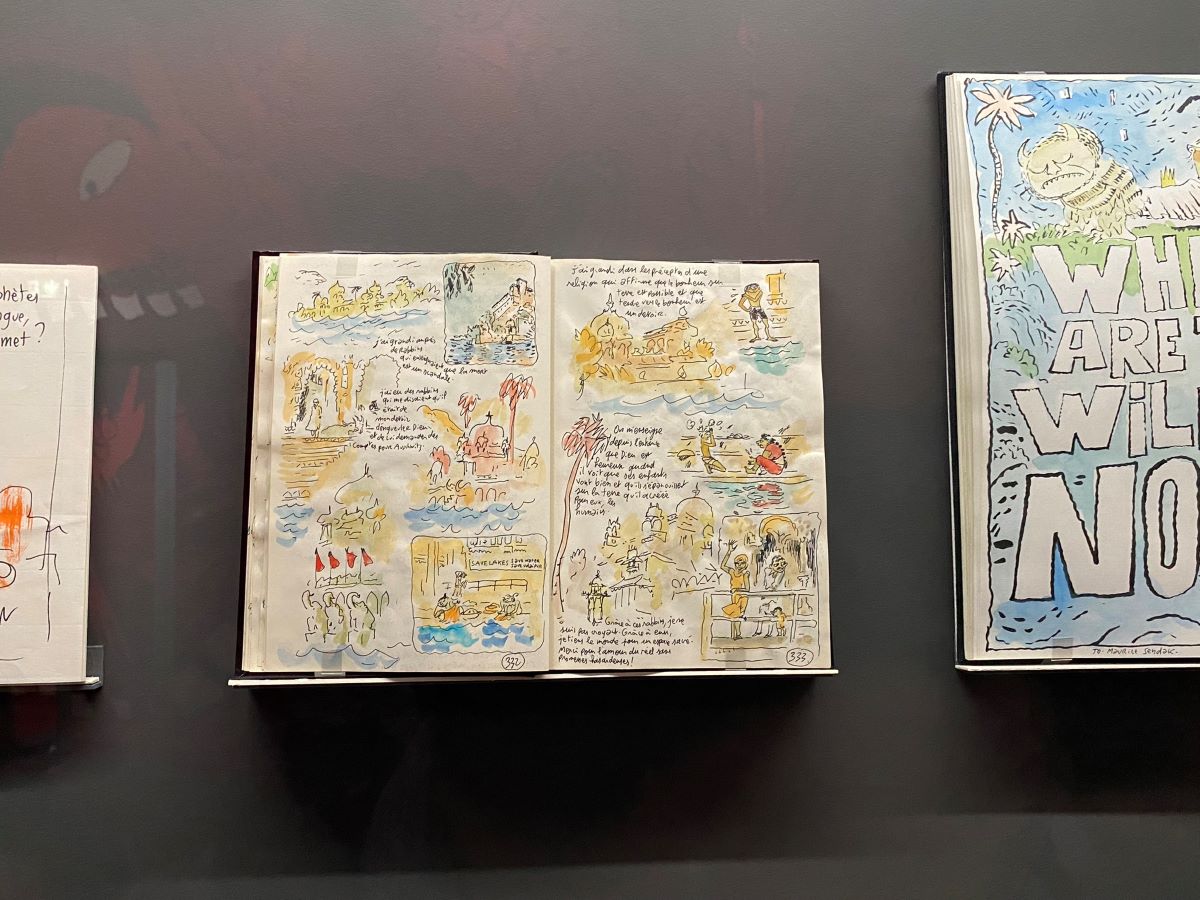 phètes
ngue,
met ?
N
j'ai grandi auprès
de rabbins
qui enseignent que la mort
est un scandale.
j'ai eu des rabbins
qui me disaient qu'il
était de
mon devoir
d'engueuler Dieu
et de lui demander des
comptes pour Auschwitz.
SAVE LAKES save water
332
j'ai grandi dans les préceptes d'une
religion qui affirme que le bonheur sur
terre est possible et que
tendre vers le bonheur est
un devoir.
On m'enseigne
depuis l'enfance
que Dieu est
heureux quand
il voit que ses enfants
vont bien et qu'ils s'épanouissent
sur la terre qu'il a créée
pour eux, les
humains.
Grâce à ces rabbins, je ne
suis pas croyant. Grâce à eux,
je tiens le monde pour un espace sacré.
Merci pour l'amour du réel sans
promesses hasardeuses !
333
WHE
ARE T
WiL
NO
TO: MAURICE Sendak.